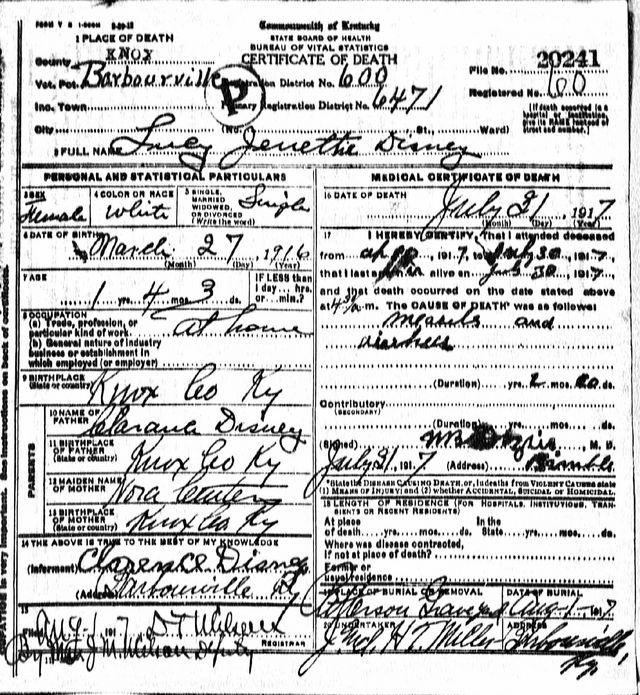 Commonwealth of Kentucky
STATE BOARD OF HEALTH
BUREAU OF VITAL STATISTICS
CERTIFICATE OF DEATH
1 PLACE OF DEATH
County KNOX
File No. 20241
Vot. Pct. Barbourville
Registration District No. 600
Registered No. 60
Inc. Town
P
Primary Registration District No. 6471
(If death occurred in a hospital or institution, give its NAME instead of street and number.)
City (No. St., Ward)
2 FULL NAME Lucy Jenettie Disney
PERSONAL AND STATISTICAL PARTICULARS
3 SEX Female
4 COLOR OR RACE White
5 SINGLE, MARRIED, WIDOWED, OR DIVORCED (Write the word) Single
6 DATE OF BIRTH March 27, 1916
(Month) (Day) (Year)
7 AGE 1 yrs. 4 mos. 3 ds.
IF LESS than 1 day... hrs. or... min.?
8 OCCUPATION
(a) Trade, profession, or particular kind of work at home
(b) General nature of industry business or establishment in which employed (or employer)
9 BIRTHPLACE (State or country) Knox Co Ky
PARENTS
10 NAME OF FATHER Disney
11 BIRTHPLACE OF FATHER (State or country) Knox Co Ky
12 MAIDEN NAME OF MOTHER Nora
13 BIRTHPLACE OF MOTHER (State or country) Knox Co Ky
14 THE ABOVE IS TRUE TO THE BEST OF MY KNOWLEDGE
(Informant) Clarence Disney
(Address) Barbourville Ky
15
Aug 1 1917
REGISTRAR
By J M Wilson Deputy
MEDICAL CERTIFICATE OF DEATH
16 DATE OF DEATH July 31 1917
(Month) (Day) (Year)
17 I HEREBY CERTIFY, That I attended deceased
from 1917, to July 30, 1917,
that I last saw alive on July 30, 1917,
and that death occurred on the date stated above
at 4 30 a m. The CAUSE OF DEATH was as follows
measils and
(Duration) yrs. 2 mos. ds.
Contributory (SECONDARY)
(Duration) yrs. mos. ds.
(Signed) M. D.
July 31, 1917 (Address)
*State the DISEASE CAUSING DEATH, or, in deaths from VIOLENT CAUSES state (1) MEANS OF INJURY; and (2) whether ACCIDENTAL, SUICIDAL OR HOMICIDAL.
18 LENGTH OF RESIDENCE (FOR HOSPITALS, INSTITUTIONS, TRANSIENTS OR RECENT RESIDENTS)
At place of death yrs. mos. ds. In the State yrs. mos. ds.
Where was disease contracted, if not at place of death?
Former or usual residence
19 PLACE OF BURIAL OR REMOVAL Graveyard
DATE OF BURIAL Aug 1 1917
20 UNDERTAKER H T Miller
ADDRESS Barbourville, Ky.